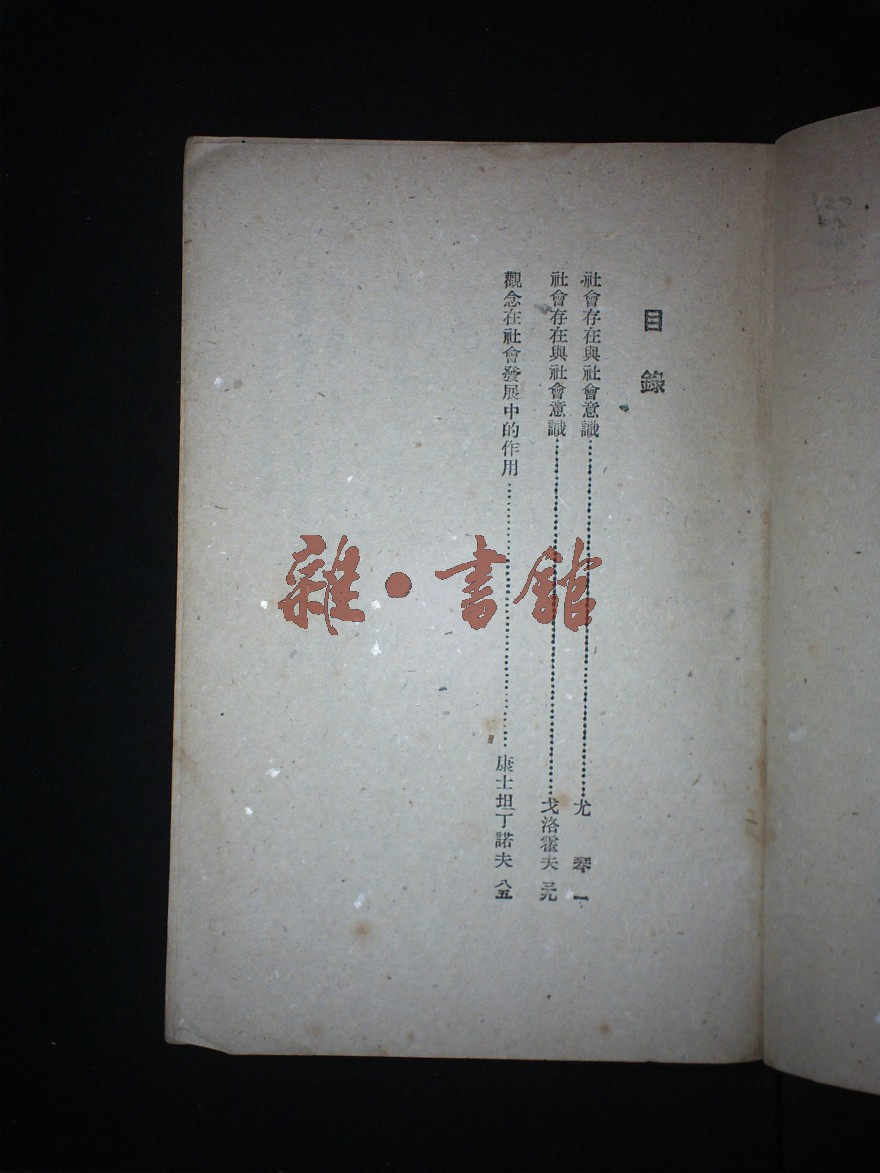 目錄
社會存在與社會意識……尤琴 一
社會存在與社會意識……戈洛霍夫
觀念在社會發展中的作用……康士坦丁諾夫 八五
雜·書館